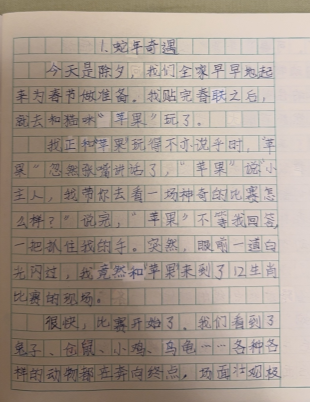 1.蛇年奇遇
今天是除夕,我们全家早早地起
来为春节做准备。我贴完春联之后,
就去和猫咪“苹果”玩了。
我正和“苹果”玩得不亦说乎时,“苹
果”忽然张嘴讲话了,“苹果”说“小
主人,我带你去看一场神奇的比赛怎
么样?”说完,“苹果”不等我回答,
一把抓住我的手。突然,眼前一道白
光闪过,我竟然和苹果来到了12生肖
比赛的现场。
很快,比赛开始了。我们看到了
兔子、仓鼠、小鸡、乌龟……各种各
样的动物都在奔向终点。场面壮观极